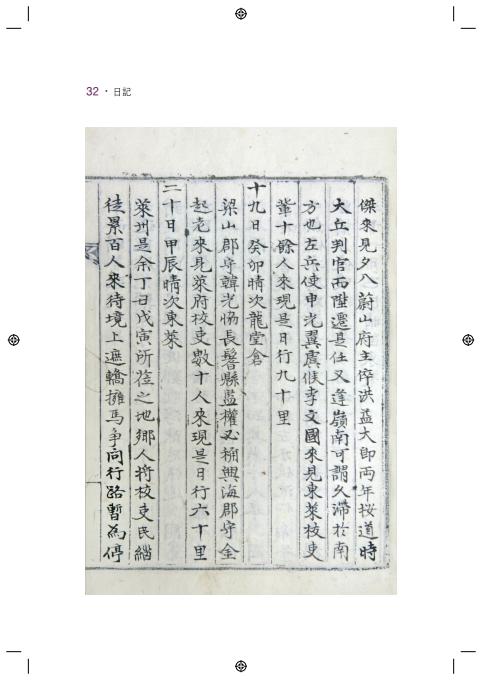 32 · 日記
傑來見夕入蔚山府主倅洪益大卽兩年按道時
大丘判官而陞遷是任又逢嶺南可謂久滯於南
方也左兵使申光翼虞候李文國來見東萊校吏
輩十餘人來現是日行九十里
十九日癸卯晴次龍堂倉
梁山郡守韓光協長鬐縣監權必稱興海郡守金
起老來見萊府校吏數十人來現是日行六十里
二十日甲辰晴次東萊
萊州是余丁丑戊寅所莅之地鄉人將校吏民緇
徒累百人來待境上遮轎擁馬爭向行路暫爲停